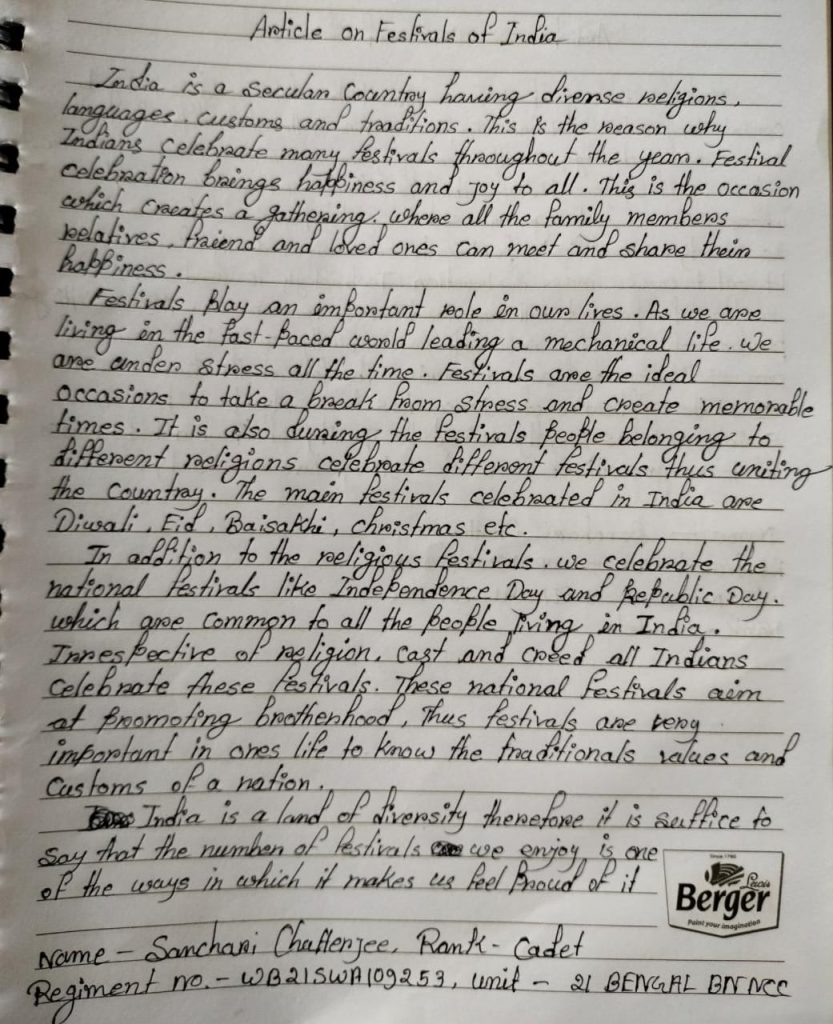 Article on Festivals of India
India is a secular Country having diverse religions,
languages, customs and traditions. This is the reason why
Indians celebrate many festivals throughout the year. Festival
celebration brings happiness and joy to all. This is the occasion
which creates a gathering, where all the family members
relatives, friend and loved ones can meet and share their
happiness.
Festivals play an important role in our lives. As we are
living in the fast-paced world leading a mechanical life. We
are under stress all the time. Festivals are the ideal
occasions to take a break from stress and create memorable
times. It is also during the festivals people belonging to
different religions celebrate different festivals thus uniting
the country. The main festivals celebrated in India are
Diwali, Eid, Baisakhi, christmas etc.
In addition to the religious festivals, we celebrate the
national festivals like Independence Day and Republic Day.
which are common to all the people living in India.
Irrespective of religion, cast and creed all Indians
celebrate these festivals. These national festivals aim
at promoting brotherhood, Thus festivals are very
important in ones life to know the traditionals values and
customs of a nation.
India is a land of diversity therefore it is suffice to
say that the number of festivals we enjoy is one
of the ways in which it makes us feel proud of it
Since 1760
Lewis
Berger
Paint your imagination
Name - Sanchari Chatterjee, Rank - Cadet
Regiment no. - WB21SWA109253, unit - 21 BENGAL BN NCC